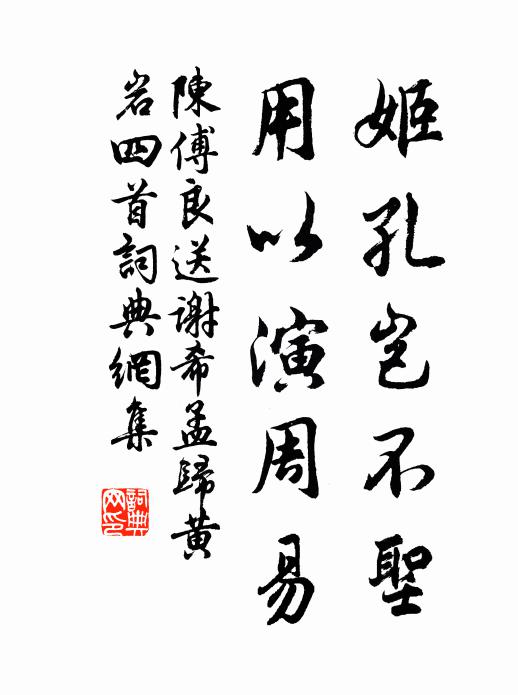 姬孔岂不聖
用以演周易
陳傅良送謝希孟歸黃
岩四首詞典網集
詞典网印